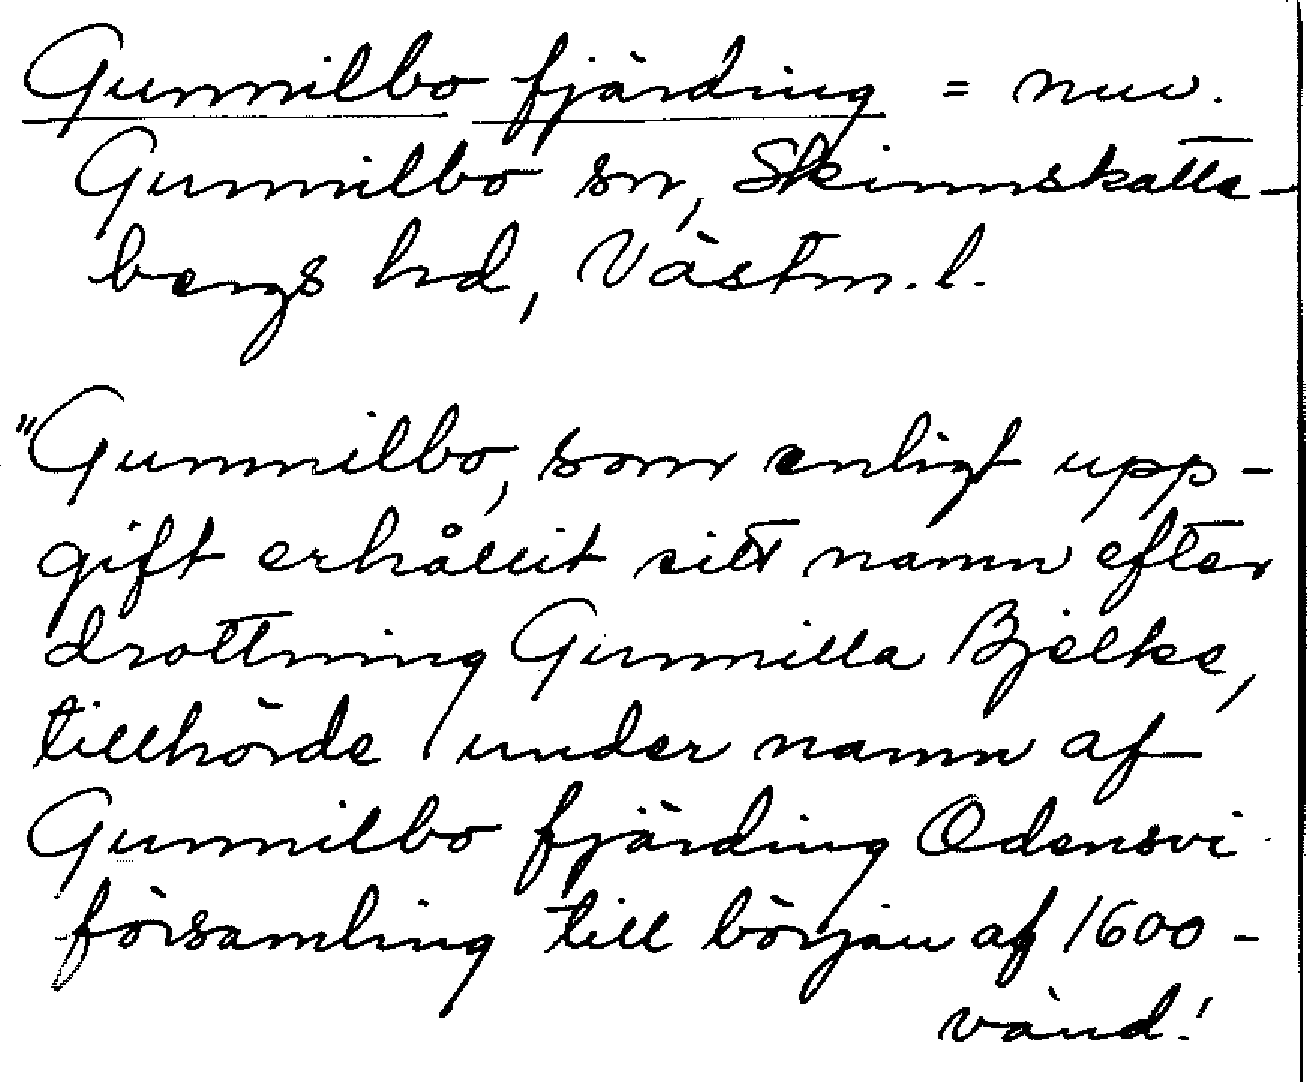 Gunnilbo fjärding = nuv.
Gunnilbo sn, Skinnskatte-
bergs hd, Västm. l.
"Gunnilbo, som enligt upp-
gift erhållit sitt namn efter
drottning Gunnilla Bjelke,
tillhörde under namn af
Gunnilbo fjärding Odensvi
församling till början af 1600-